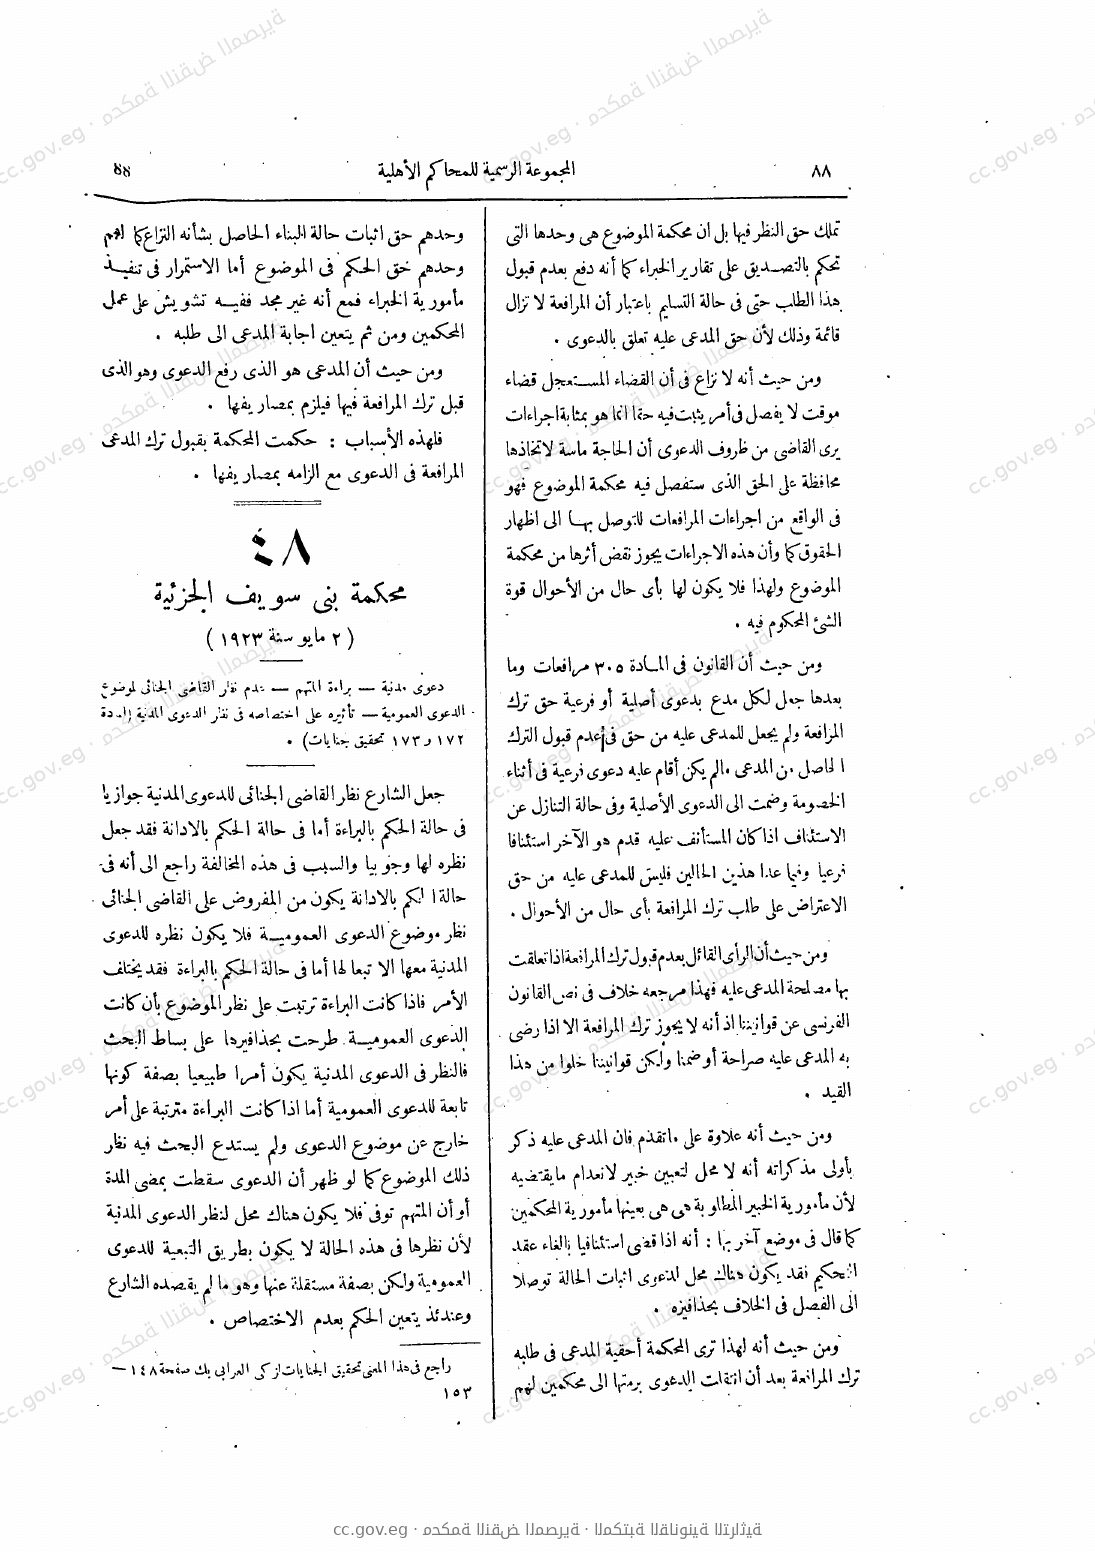 ٨٨
المجموعة الرسمية للمحاكم الأهلية
88
تملك حق النظر فيها بل ان محكمة الموضوع هى وحدها التى
تحكم بالتصديق على تقارير الخبراء كما أنه دفع بعدم قبول
هذا الطلب حتى فى حالة التسليم باعتبار أن المرافعة لا تزال
قائمة وذلك لأن حق المدعى عليه تعلق بالدعوى .
ومن حيث أنه لا نزاع فى أن القضاء المستعجل قضاء
موقت لا يفصل فى أمر يثبت فيه حتما انما هو بمثابة اجراءات
يرى القاضى من ظروف الدعوى أن الحاجة ماسة لاتخاذها
محافظة على الحق الذى ستفصل فيه محكمة الموضوع فهو
فى الواقع من اجراءات المرافعات للتوصل بها الى اظهار
الحقوق كما وأن هذه الاجراءات يجوز نقض أثرها من محكمة
الموضوع ولهذا فلا يكون لها بأى حال من الأحوال قوة
الشئ المحكوم فيه .
ومن حيث أن القانون فى المادة ٣٠٥ مرافعات وما
بعدها جعل لكل مدع بدعوى أصلية أو فرعية حق ترك
المرافعة ولم يجعل للمدعى عليه من حق فى عدم قبول الترك
الحاصل من المدعى مالم يكن أقام عليه دعوى فرعية فى أثناء
الخصومة وضمت الى الدعوى الأصلية وفى حالة التنازل عن
الاستئناف اذا كان المستأنف عليه قدم هو الآخر استئنافا
فرعيا وفيما عدا هذين الحالين فليس للمدعى عليه من حق
الاعتراض على طلب ترك المرافعة بأى حال من الأحوال .
ومن حيث أن الرأى القائل بعدم قبول ترك المرافعة اذا تعلقت
بها مصلحة المدعى عليه فهذا مرجعه خلاف فى نص القانون
الفرنسى عن قوانيننا اذ أنه لا يجوز ترك المرافعة الا اذا رضى
به المدعى عليه صراحة أو ضمنا ولكن قوانيننا خلوا من هذا
القيد .
ومن حيث أنه علاوة على ماتقدم فان المدعى عليه ذكر
بأولى مذكراته أنه لا محل لتعيين خبير لانعدام مايقتضيه
لأن مأمورية الخبير المطلوبة هى هى بعينها مأمورية المحكمين
كما قال فى موضع آخر بها : أنه اذا قضى استئنافيا بالغاء عقد
التحكيم فقد يكون هناك محل لدعوى اثبات الحالة توصلا
الى الفصل فى الخلاف بحذافيره .
ومن حيث أنه لهذا ترى المحكمة أحقية المدعى فى طلبه
ترك المرافعة بعد أن انتقلت الدعوى برمتها الى محكمين لهم
وحدهم حق اثبات حالة البناء الحاصل بشأنه النزاع كما لهم
وحدهم حق الحكم فى الموضوع أما الاستمرار فى تنفيذ
مأمورية الخبراء فمع أنه غير مجد ففيه تشويش على عمل
المحكمين ومن ثم يتعين اجابة المدعى الى طلبه .
ومن حيث أن المدعى هو الذى رفع الدعوى وهو الذى
قبل ترك المرافعة فيها فيلزم بمصاريفها .
فلهذه الأسباب : حكمت المحكمة بقبول ترك المدعى
المرافعة فى الدعوى مع الزامه بمصاريفها .
٤٨
محكمة بنى سويف الجزئية
( ٢ مايو سنة ١٩٢٣ )
دعوى مدنية — براءة المتهم — عدم نظر القاضى الجنائى لموضوع
الدعوى العمومية — تأثيره على اختصاصه فى نظر الدعوى المدنية (المادة
١٧٢ و ١٧٣ تحقيق جنايات) .
جعل الشارع نظر القاضى الجنائى للدعوى المدنية جوازيا
فى حالة الحكم بالبراءة أما فى حالة الحكم بالادانة فقد جعل
نظره لها وجوبيا والسبب فى هذه المخالفة راجع الى أنه فى
حالة الحكم بالادانة يكون من المفروض على القاضى الجنائى
نظر موضوع الدعوى العمومية فلا يكون نظره للدعوى
المدنية معها الا تبعا لها أما فى حالة الحكم بالبراءة فقد يختلف
الأمر فاذا كانت البراءة ترتبت على نظر الموضوع بأن كانت
الدعوى العمومية طرحت بحذافيرها على بساط البحث
فالنظر فى الدعوى المدنية يكون أمرا طبيعيا بصفة كونها
تابعة للدعوى العمومية أما اذا كانت البراءة مترتبة على أمر
خارج عن موضوع الدعوى ولم يستدع البحث فيه نظر
ذلك الموضوع كما لو ظهر أن الدعوى سقطت بمضى المدة
أو أن المتهم توفى فلا يكون هناك محل لنظر الدعوى المدنية
لأن نظرها فى هذه الحالة لا يكون بطريق التبعية للدعوى
العمومية ولكن بصفة مستقلة عنها وهو ما لم يقصده الشارع
وعندئذ يتعين الحكم بعدم الاختصاص .
راجع فى هذا المعنى تحقيق الجنايات لزكى العرابى بك صفحة ١٤٨ —
١٥٣
cc.gov.eg · محكمة النقض المصرية · المكتبة القانونية التراثية